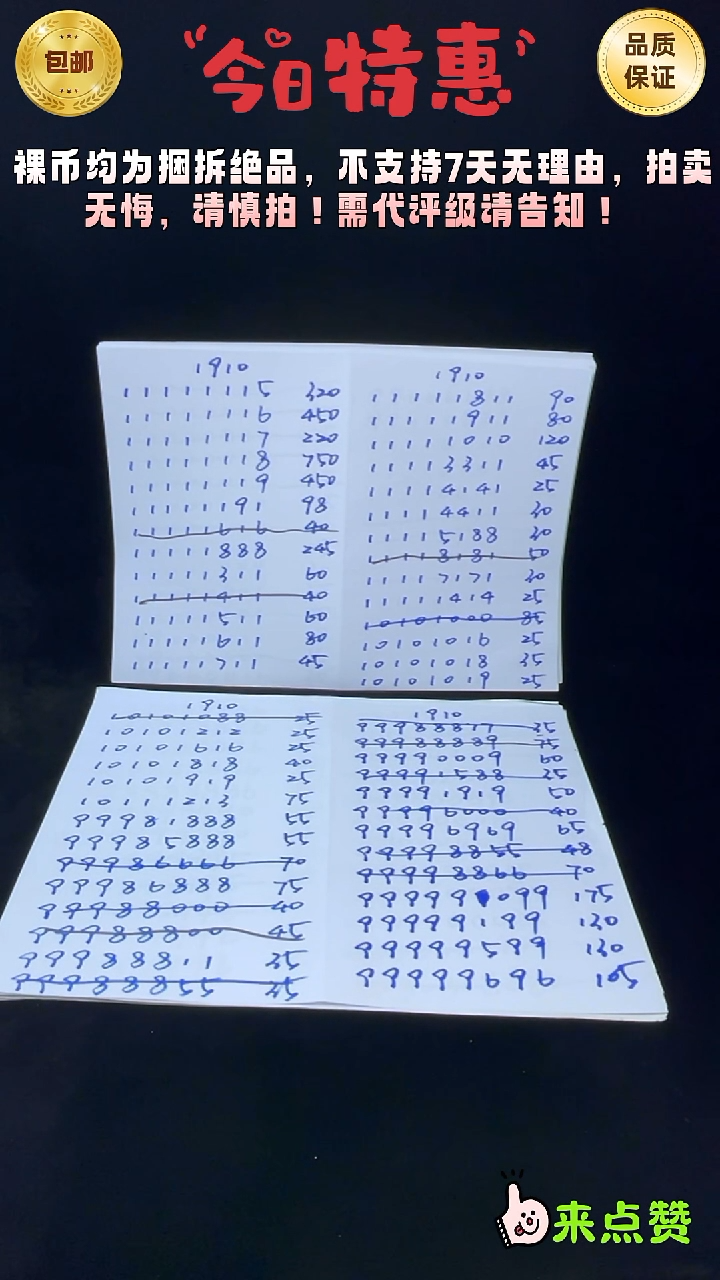 包邮
今日特惠
品质
保证
裸币均为捆拆绝品，不支持7天无理由，拍卖
无悔，请慎拍！需代评级请告知！
1910
11111115 320
11111116 450
11111117 220
11111118 750
11111119 450
11111191 98
11111616 40
11111888 245
11111311 60
11111411 40
11111511 60
11111611 80
11111711 45
1910
11111811 90
11111911 80
11111010 120
11113311 45
11114141 25
11114411 30
11115188 30
11118181 50
11117171 30
11111414 25
10101000 85
10101016 25
10101018 35
10101019 25
1910
10101088 25
10101212 25
10101616 25
10101818 40
10101919 25
10111213 75
99981888 55
99985888 55
99986666 70
99986888 75
99988000 40
99988800 45
99988811 35
99988855 45
1910
99988877 35
99988889 75
99990009 60
99991588 35
99991919 50
99996000 40
99996969 65
99998855 48
99998866 70
99999099 175
99999199 130
99999599 130
99999696 105
来点赞